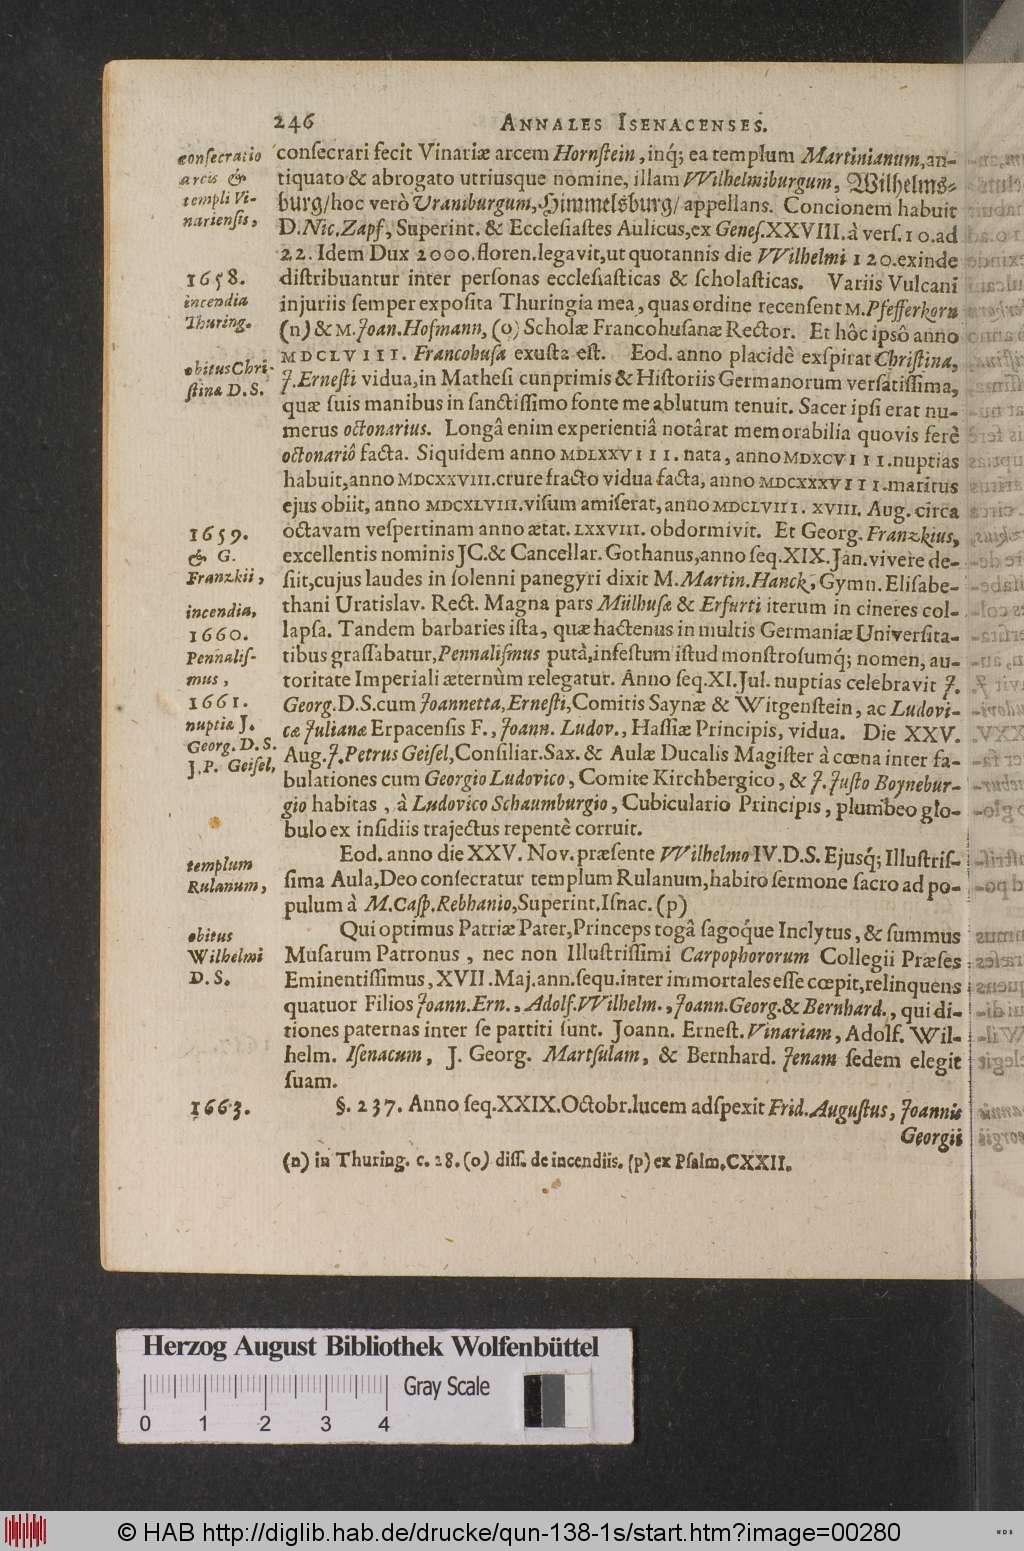 246 ANNALES ISENACENSES.
conſecratio
arcis &
templi Vi-
narienſis,
1658.
incendia
Thuring.
obitus Chri-
ſtinæ D.S.
1659.
& G.
Franzkii,
incendia,
1660.
Pennaliſ-
mus,
1661.
nuptiæ J.
Georg. D.S.
J.P. Geiſel,
templum
Rulanum,
obitus
Wilhelmi
D.S.
1663.
conſecrari fecit Vinariæ arcem Hornſtein, inq́; ea templum Martinianum, an-
tiquato & abrogato utriusque nomine, illam VVilhelmiburgum, Wilhelms-
burg/ hoc verò Uraniburgum, Himmelsburg/ appellans. Concionem habuit
D. Nic. Zapf, Superint. & Eccleſiaſtes Aulicus, ex Geneſ. XXVIII. à verſ. 10. ad
22. Idem Dux 2000. floren. legavit, ut quotannis die VVilhelmi 120. exinde
diſtribuantur inter perſonas eccleſiaſticas & ſcholaſticas. Variis Vulcani
injuriis ſemper expoſita Thuringia mea, quas ordine recenſent M. Pfefferkorn
(n) & M. Joan. Hofmann, (o) Scholæ Francohuſanæ Rector. Et hôc ipsô anno
MDCLVIII. Francohuſa exuſta eſt. Eod. anno placidè exſpirat Chriſtina,
J. Erneſti vidua, in Matheſi cunprimis & Hiſtoriis Germanorum verſatiſſima,
quæ ſuis manibus in ſanctiſſimo fonte me ablutum tenuit. Sacer ipſi erat nu-
merus octonarius. Longâ enim experientiâ notârat memorabilia quovis ferè
octonariô facta. Siquidem anno MDLXXVIII. nata, anno MDXCVIII. nuptias
habuit, anno MDCXXVIII. crure fracto vidua facta, anno MDCXXXVIII. maritus
ejus obiit, anno MDCXLVIII. viſum amiſerat, anno MDCLVIII. XVIII. Aug. circa
octavam veſpertinam anno ætat. LXXVIII. obdormivit. Et Georg. Franzkius,
excellentis nominis JC. & Cancellar. Gothanus, anno ſeq. XIX. Jan. vivere de-
ſiit, cujus laudes in ſolenni panegyri dixit M. Martin. Hanck, Gymn. Eliſabe-
thani Uratislav. Rect. Magna pars Mülhuſæ & Erfurti iterum in cineres col-
lapſa. Tandem barbaries iſta, quæ hactenus in multis Germaniæ Univerſita-
tibus graſſabatur, Pennaliſmus putà, infeſtum iſtud monſtroſumq́; nomen, au-
toritate Imperiali æternùm relegatur. Anno ſeq. XI. Jul. nuptias celebravit J.
Georg. D.S. cum Joannetta, Erneſti, Comitis Saynæ & Witgenſtein, ac Ludovi-
cæ Julianæ Erpacenſis F., Joann. Ludov., Haſſiæ Principis, vidua. Die XXV.
Aug. J. Petrus Geiſel, Conſiliar. Sax. & Aulæ Ducalis Magiſter à cœna inter fa-
bulationes cum Georgio Ludovico, Comite Kirchbergico, & J. Juſto Boynebur-
gio habitas, à Ludovico Schaumburgio, Cubiculario Principis, plumbeo glo-
bulo ex inſidiis trajectus repentè corruit.
Eod. anno die XXV. Nov. præſente VVilhelmo IV. D.S. Ejusq́; Illuſtriſ-
ſima Aula, Deo conſecratur templum Rulanum, habito ſermone ſacro ad po-
pulum à M. Caſp. Rebhanio, Superint. Iſnac. (p)
Qui optimus Patriæ Pater, Princeps togâ ſagoq́ue Inclytus, & ſummus
Muſarum Patronus, nec non Illuſtriſſimi Carpophororum Collegii Præſes
Eminentiſſimus, XVII. Maj. ann. ſequ. inter immortales eſſe cœpit, relinquens
quatuor Filios Joann. Ern., Adolf. VVilhelm., Joann. Georg. & Bernhard., qui di-
tiones paternas inter ſe partiti ſunt. Joann. Erneſt. Vinariam, Adolf. Wil-
helm. Iſenacum, J. Georg. Martſulam, & Bernhard. Jenam ſedem elegit
ſuam.
§. 237. Anno ſeq. XXIX. Octobr. lucem adſpexit Frid. Auguſtus, Joannis
Georgii
(n) in Thuring. c. 28. (o) diſſ. de incendiis. (p) ex Pſalm. CXXII.
Herzog August Bibliothek Wolfenbüttel
Gray Scale
0 1 2 3 4
© HAB http://diglib.hab.de/drucke/qun-138-1s/start.htm?image=00280